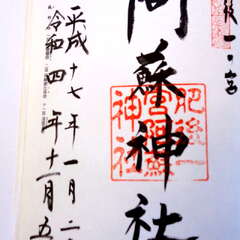 後一の宮
阿蘇神社
肥後一
宮阿蘇
神社
平成十七年一月二
令和四年十一月五